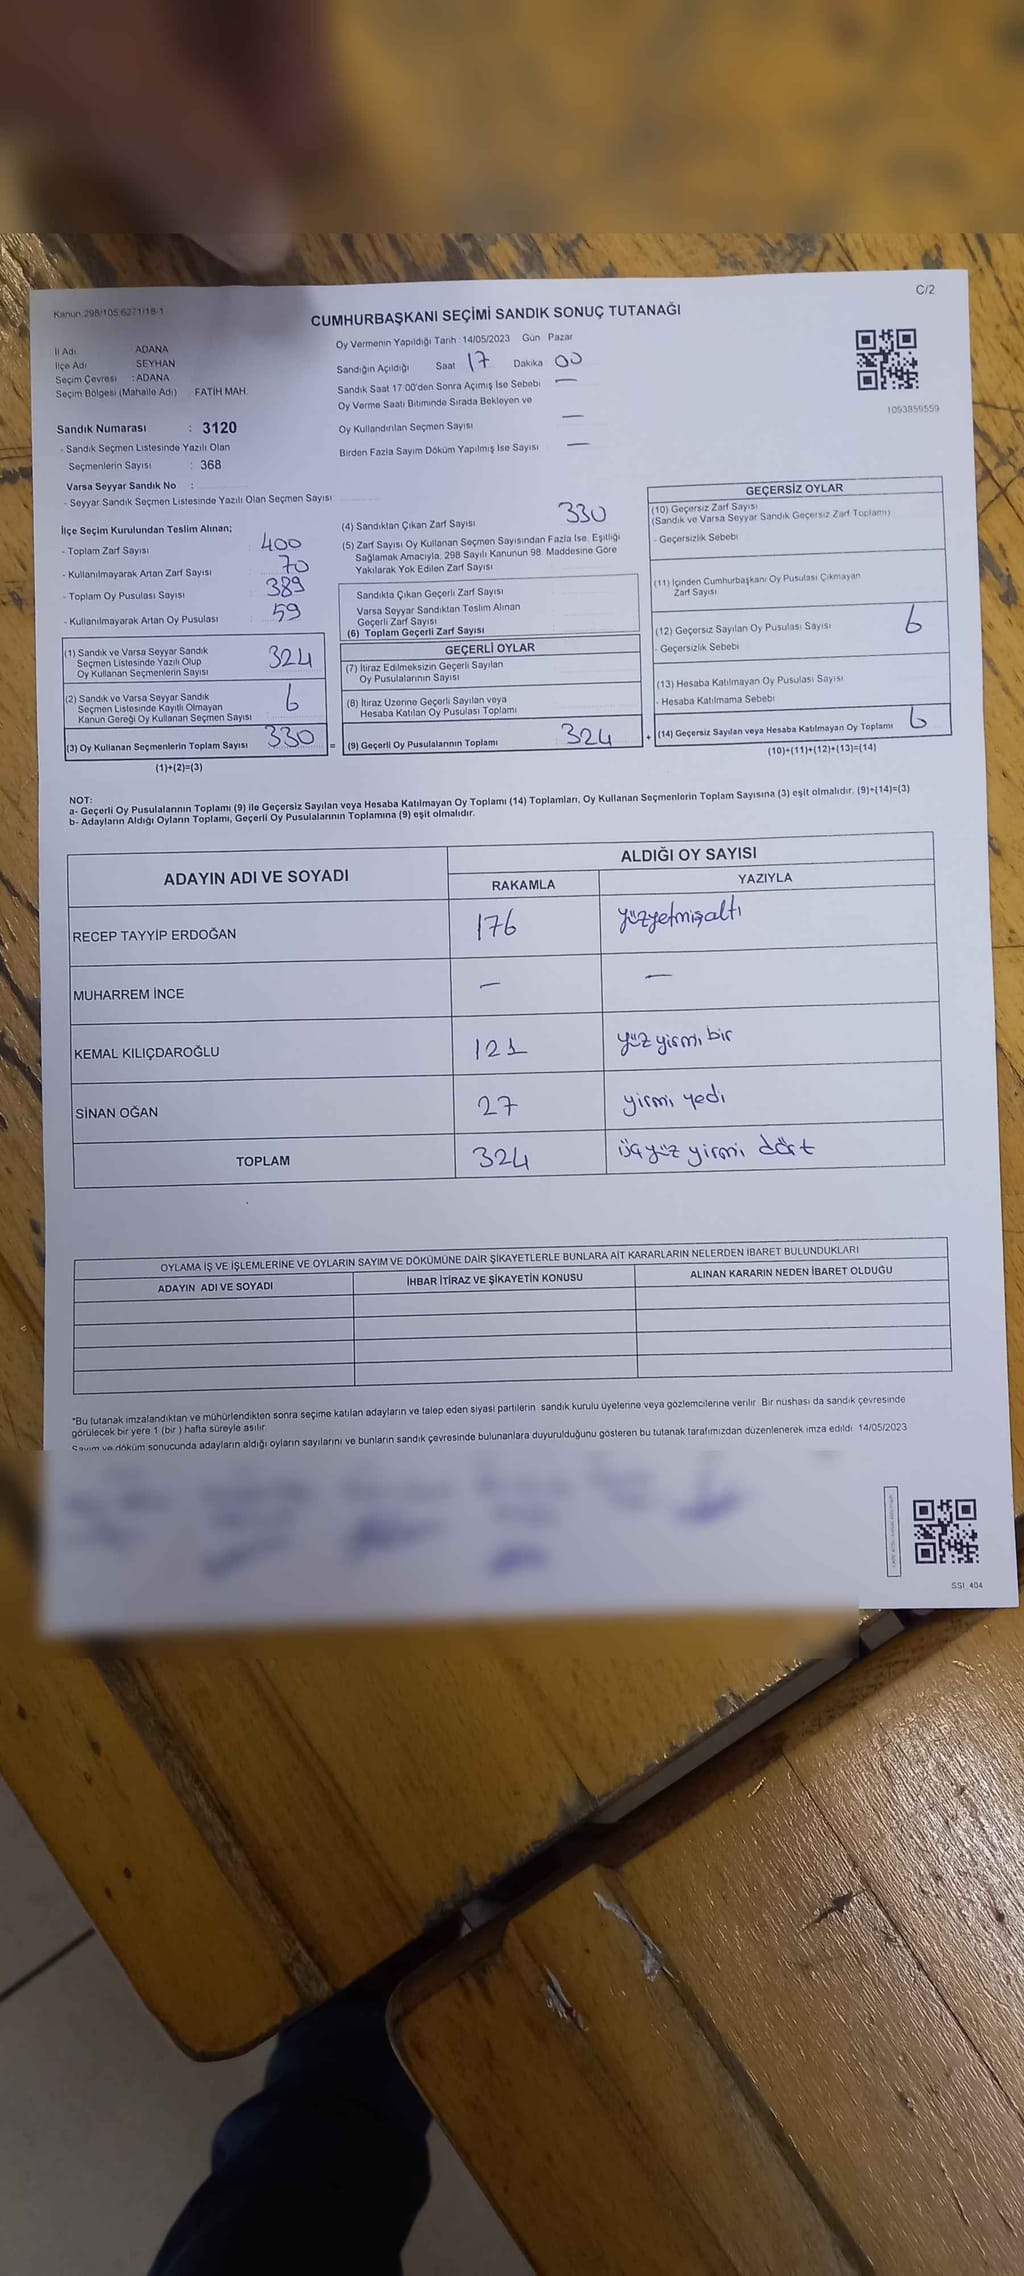 C/2
Kanun 298/105 6271/18-1
CUMHURBAŞKANI SEÇİMİ SANDIK SONUÇ TUTANAĞI
İl Adı ADANA
İlçe Adı SEYHAN
Seçim Çevresi : ADANA
Seçim Bölgesi (Mahalle Adı) FATIH MAH.
Sandık Numarası : 3120
- Sandık Seçmen Listesinde Yazılı Olan
Seçmenlerin Sayısı : 368
Varsa Seyyar Sandık No :
- Seyyar Sandık Seçmen Listesinde Yazılı Olan Seçmen Sayısı
Oy Vermenin Yapıldığı Tarih : 14/05/2023 Gün Pazar
Sandığın Açıldığı Saat 17 Dakika 00
Sandık Saat 17:00'den Sonra Açımış İse Sebebi —
Oy Verme Saati Bitiminde Sırada Bekleyen ve
Oy Kullandırılan Seçmen Sayısı —
Birden Fazla Sayım Döküm Yapılmış İse Sayısı —
1093859559
İlçe Seçim Kurulundan Teslim Alınan;
- Toplam Zarf Sayısı 400
- Kullanılmayarak Artan Zarf Sayısı 70
- Toplam Oy Pusulası Sayısı 389
- Kullanılmayarak Artan Oy Pusulası 59
(1) Sandık ve Varsa Seyyar Sandık
Seçmen Listesinde Yazılı Olup
Oy Kullanan Seçmenlerin Sayısı 324
(2) Sandık ve Varsa Seyyar Sandık
Seçmen Listesinde Kayıtlı Olmayan
Kanun Gereği Oy Kullanan Seçmen Sayısı 6
(3) Oy Kullanan Seçmenlerin Toplam Sayısı 330
(1)+(2)=(3)
(4) Sandıktan Çıkan Zarf Sayısı 330
(5) Zarf Sayısı Oy Kullanan Seçmen Sayısından Fazla İse, Eşitliği
Sağlamak Amacıyla, 298 Sayılı Kanunun 98. Maddesine Göre
Yakılarak Yok Edilen Zarf Sayısı
Sandıkta Çıkan Geçerli Zarf Sayısı
Varsa Seyyar Sandıktan Teslim Alınan
Geçerli Zarf Sayısı
(6) Toplam Geçerli Zarf Sayısı
GEÇERLİ OYLAR
(7) İtiraz Edilmeksizin Geçerli Sayılan
Oy Pusulalarının Sayısı
(8) İtiraz Üzerine Geçerli Sayılan veya
Hesaba Katılan Oy Pusulası Toplamı
= (9) Geçerli Oy Pusulalarının Toplamı 324
GEÇERSİZ OYLAR
(10) Geçersiz Zarf Sayısı
(Sandık ve Varsa Seyyar Sandık Geçersiz Zarf Toplamı)
- Geçersizlik Sebebi
(11) İçinden Cumhurbaşkanı Oy Pusulası Çıkmayan
Zarf Sayısı
(12) Geçersiz Sayılan Oy Pusulası Sayısı 6
- Geçersizlik Sebebi
(13) Hesaba Katılmayan Oy Pusulası Sayısı
- Hesaba Katılmama Sebebi
+ (14) Geçersiz Sayılan veya Hesaba Katılmayan Oy Toplamı 6
(10)+(11)+(12)+(13)=(14)
NOT:
a- Geçerli Oy Pusulalarının Toplamı (9) ile Geçersiz Sayılan veya Hesaba Katılmayan Oy Toplamı (14) Toplamları, Oy Kullanan Seçmenlerin Toplam Sayısına (3) eşit olmalıdır. (9)+(14)=(3)
b- Adayların Aldığı Oyların Toplamı, Geçerli Oy Pusulalarının Toplamına (9) eşit olmalıdır.
ADAYIN ADI VE SOYADI ALDIĞI OY SAYISI
RAKAMLA YAZIYLA
RECEP TAYYİP ERDOĞAN 176 yüzyetmişaltı
MUHARREM İNCE — —
KEMAL KILIÇDAROĞLU 121 yüz yirmi bir
SİNAN OĞAN 27 yirmi yedi
TOPLAM 324 üçyüz yirmi dört
OYLAMA İŞ VE İŞLEMLERİNE VE OYLARIN SAYIM VE DÖKÜMÜNE DAİR ŞİKAYETLERLE BUNLARA AİT KARARLARIN NELERDEN İBARET BULUNDUKLARI
ADAYIN ADI VE SOYADI İHBAR İTİRAZ VE ŞİKAYETİN KONUSU ALINAN KARARIN NEDEN İBARET OLDUĞU
*Bu tutanak imzalandıktan ve mühürlendikten sonra seçime katılan adayların ve talep eden siyasi partilerin sandık kurulu üyelerine veya gözlemcilerine verilir. Bir nüshası da sandık çevresinde
görülecek bir yere 1 (bir ) hafta süreyle asılır.
Sayım ve döküm sonucunda adayların aldığı oyların sayılarını ve bunların sandık çevresinde bulunanlara duyurulduğunu gösteren bu tutanak tarafımızdan düzenlenerek imza edildi. 14/05/2023
SSI_404